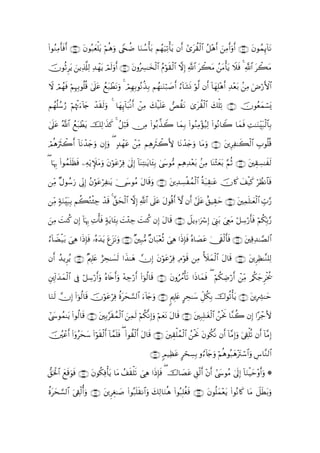 نَآئِمُونَ ۝ أَوَأَمِنَ أَهْلُ ٱلْقُرَىٰٓ أَن يَأْتِيَهُم بَأْسُنَا ضُحًى وَهُمْ يَلْعَبُونَ ۝ أَفَأَمِنُوا۟
مَكْرَ ٱللَّهِ ۚ فَلَا يَأْمَنُ مَكْرَ ٱللَّهِ إِلَّا ٱلْقَوْمُ ٱلْخَـٰسِرُونَ ۝ أَوَلَمْ يَهْدِ لِلَّذِينَ يَرِثُونَ
ٱلْأَرْضَ مِنۢ بَعْدِ أَهْلِهَآ أَن لَّوْ نَشَآءُ أَصَبْنَـٰهُم بِذُنُوبِهِمْ ۚ وَنَطْبَعُ عَلَىٰ قُلُوبِهِمْ فَهُمْ لَا
يَسْمَعُونَ ۝ تِلْكَ ٱلْقُرَىٰ نَقُصُّ عَلَيْكَ مِنْ أَنۢبَآئِهَا ۚ وَلَقَدْ جَآءَتْهُمْ رُسُلُهُم
بِٱلْبَيِّنَـٰتِ فَمَا كَانُوا۟ لِيُؤْمِنُوا۟ بِمَا كَذَّبُوا۟ مِن قَبْلُ ۚ كَذَٰلِكَ يَطْبَعُ ٱللَّهُ عَلَىٰ
قُلُوبِ ٱلْكَـٰفِرِينَ ۝ وَمَا وَجَدْنَا لِأَكْثَرِهِم مِّنْ عَهْدٍ ۖ وَإِن وَجَدْنَآ أَكْثَرَهُمْ
لَفَـٰسِقِينَ ۝ ثُمَّ بَعَثْنَا مِنۢ بَعْدِهِم مُّوسَىٰ بِـَٔايَـٰتِنَآ إِلَىٰ فِرْعَوْنَ وَمَلَإِي۟هِۦ فَظَلَمُوا۟ بِهَا ۖ
فَٱنظُرْ كَيْفَ كَانَ عَـٰقِبَةُ ٱلْمُفْسِدِينَ ۝ وَقَالَ مُوسَىٰ يَـٰفِرْعَوْنُ إِنِّى رَسُولٌ مِّن
رَّبِّ ٱلْعَـٰلَمِينَ ۝ حَقِيقٌ عَلَىٰٓ أَن لَّآ أَقُولَ عَلَى ٱللَّهِ إِلَّا ٱلْحَقَّ ۚ قَدْ جِئْتُكُم بِبَيِّنَةٍ مِّن
رَّبِّكُمْ فَأَرْسِلْ مَعِىَ بَنِىٓ إِسْرَٰٓءِيلَ ۝ قَالَ إِن كُنتَ جِئْتَ بِـَٔايَةٍ فَأْتِ بِهَآ إِن كُنتَ مِنَ
ٱلصَّـٰدِقِينَ ۝ فَأَلْقَىٰ عَصَاهُ فَإِذَا هِىَ ثُعْبَانٌ مُّبِينٌ ۝ وَنَزَعَ يَدَهُۥ فَإِذَا هِىَ بَيْضَآءُ
لِلنَّـٰظِرِينَ ۝ قَالَ ٱلْمَلَأُ مِن قَوْمِ فِرْعَوْنَ إِنَّ هَـٰذَا لَسَـٰحِرٌ عَلِيمٌ ۝ يُرِيدُ أَن
يُخْرِجَكُم مِّنْ أَرْضِكُمْ ۖ فَمَاذَا تَأْمُرُونَ ۝ قَالُوٓا۟ أَرْجِهْ وَأَخَاهُ وَأَرْسِلْ فِى ٱلْمَدَآئِنِ
حَـٰشِرِينَ ۝ يَأْتُوكَ بِكُلِّ سَـٰحِرٍ عَلِيمٍ ۝ وَجَآءَ ٱلسَّحَرَةُ فِرْعَوْنَ قَالُوٓا۟ إِنَّ لَنَا
لَأَجْرًا إِن كُنَّا نَحْنُ ٱلْغَـٰلِبِينَ ۝ قَالَ نَعَمْ وَإِنَّكُمْ لَمِنَ ٱلْمُقَرَّبِينَ ۝ قَالُوا۟ يَـٰمُوسَىٰٓ
إِمَّآ أَن تُلْقِىَ وَإِمَّآ أَن نَّكُونَ نَحْنُ ٱلْمُلْقِينَ ۝ قَالَ أَلْقُوا۟ ۖ فَلَمَّآ أَلْقَوْا۟ سَحَرُوٓا۟ أَعْيُنَ
ٱلنَّاسِ وَٱسْتَرْهَبُوهُمْ وَجَآءُو بِسِحْرٍ عَظِيمٍ ۝
۞ وَأَوْحَيْنَآ إِلَىٰ مُوسَىٰٓ أَنْ أَلْقِ عَصَاكَ ۖ فَإِذَا هِىَ تَلْقَفُ مَا يَأْفِكُونَ ۝ فَوَقَعَ ٱلْحَقُّ
وَبَطَلَ مَا كَانُوا۟ يَعْمَلُونَ ۝ فَغُلِبُوا۟ هُنَالِكَ وَٱنقَلَبُوا۟ صَـٰغِرِينَ ۝ وَأُلْقِىَ ٱلسَّحَرَةُ